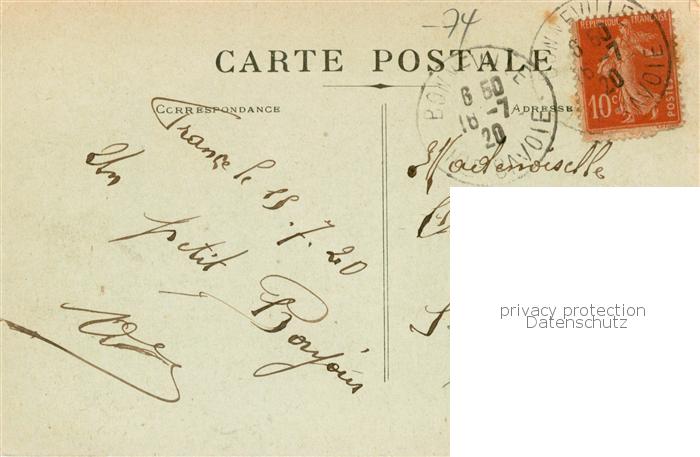 -74
CARTE POSTALE
CORRESPONDANCE
ADRESSE
RÉPUBLIQUE FRANÇAISE
10c
POSTES
BONNEVILLE
8 50
18 -7
20
SAVOIE
BONNEVILLE
SAVOIE
Mademoiselle
France le 18.7.20
Un petit
Bonjour
privacy protection
Datenschutz